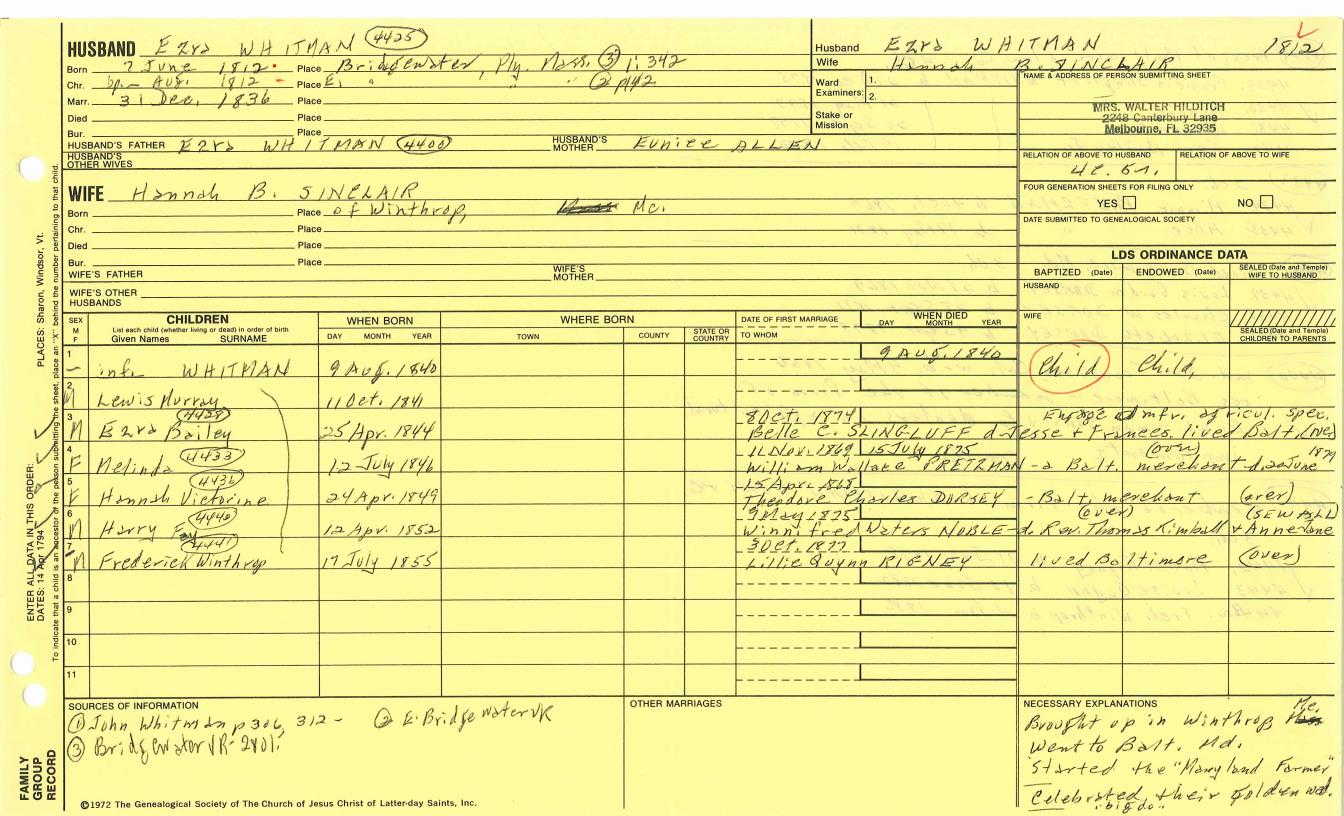 HUSBAND Ezra WHITMAN 4425
Born 7 June 1812 Place Bridgewater, Ply. Mass. ③ 1:342
Chr. bp. Aug. 1812 Place E. " " ② p142
Marr. 31 Dec. 1836 Place
Died Place
Bur. Place
HUSBAND'S FATHER Ezra WHITMAN 4400 HUSBAND'S MOTHER Eunice ALLEN
HUSBAND'S OTHER WIVES
Husband Ezra WHITMAN 1812
Wife Hannah B. SINCLAIR
Ward Examiners: 1.
2.
Stake or Mission
NAME & ADDRESS OF PERSON SUBMITTING SHEET
MRS. WALTER HILDITCH
2248 Canterbury Lane
Melbourne, FL 32935
RELATION OF ABOVE TO HUSBAND RELATION OF ABOVE TO WIFE
FOUR GENERATION SHEETS FOR FILING ONLY
YES NO
DATE SUBMITTED TO GENEALOGICAL SOCIETY
WIFE Hannah B. SINCLAIR
Born Place of Winthrop, Me.
Chr. Place
Died Place
Bur. Place
WIFE'S FATHER WIFE'S MOTHER
WIFE'S OTHER HUSBANDS
LDS ORDINANCE DATA
BAPTIZED (Date) ENDOWED (Date) SEALED (Date and Temple) WIFE TO HUSBAND
HUSBAND
WIFE
SEALED (Date and Temple) CHILDREN TO PARENTS
SEX M F CHILDREN List each child (whether living or dead) in order of birth Given Names SURNAME
WHEN BORN DAY MONTH YEAR
WHERE BORN TOWN COUNTY STATE OR COUNTRY
DATE OF FIRST MARRIAGE TO WHOM
WHEN DIED DAY MONTH YEAR
1 – inf. WHITMAN 9 Aug. 1840 9 Aug. 1840 Child Child,
2 M Lewis Murray 11 Oct. 1841
3 M Ezra Bailey 4428 25 Apr. 1844 8 Oct. 1874 Engaged mfr. agricul. spec.
Belle C. SLINGLUFF d Jesse + Frances. lived Balt. (over)
4 F Melinda 4433 12 July 1846 11 Nov. 1869 15 July 1875 (over)
William Wallace PRETZMAN - a Balt. merchant d. 20 June
5 F Hannah Victorine 4436 24 Apr. 1849 15 Apr. 1868
Theodore Charles DORSEY - Balt. merchant (over)
6 M Harry 4440 12 Apr. 1852 9 May 1875 (over) (SEWALL)
Winnifred Waters NOBLE - d. Rev. Thomas Kimball + Anne Jane
7 M Frederick Winthrop 4441 17 July 1855 3 Oct. 1877
Lillie Quynn RIGNEY lived Baltimore (over)
8
9
10
11
SOURCES OF INFORMATION
① John Whitman p 306, 312 - ② E. Bridgewater VR
③ Bridgewater VR - 2 vol.
OTHER MARRIAGES
NECESSARY EXPLANATIONS
Brought up in Winthrop Me.
Went to Balt. Md.
Started the "Maryland Farmer"
Celebrated their Golden wed.
"big do"
©1972 The Genealogical Society of The Church of Jesus Christ of Latter-day Saints, Inc.
FAMILY GROUP RECORD
ENTER ALL DATA IN THIS ORDER:
DATES: 14 Apr 1794 PLACES: Sharon, Windsor, Vt.
To indicate that a child is an ancestor of the person submitting the sheet, place an "X" behind the number pertaining to that child.